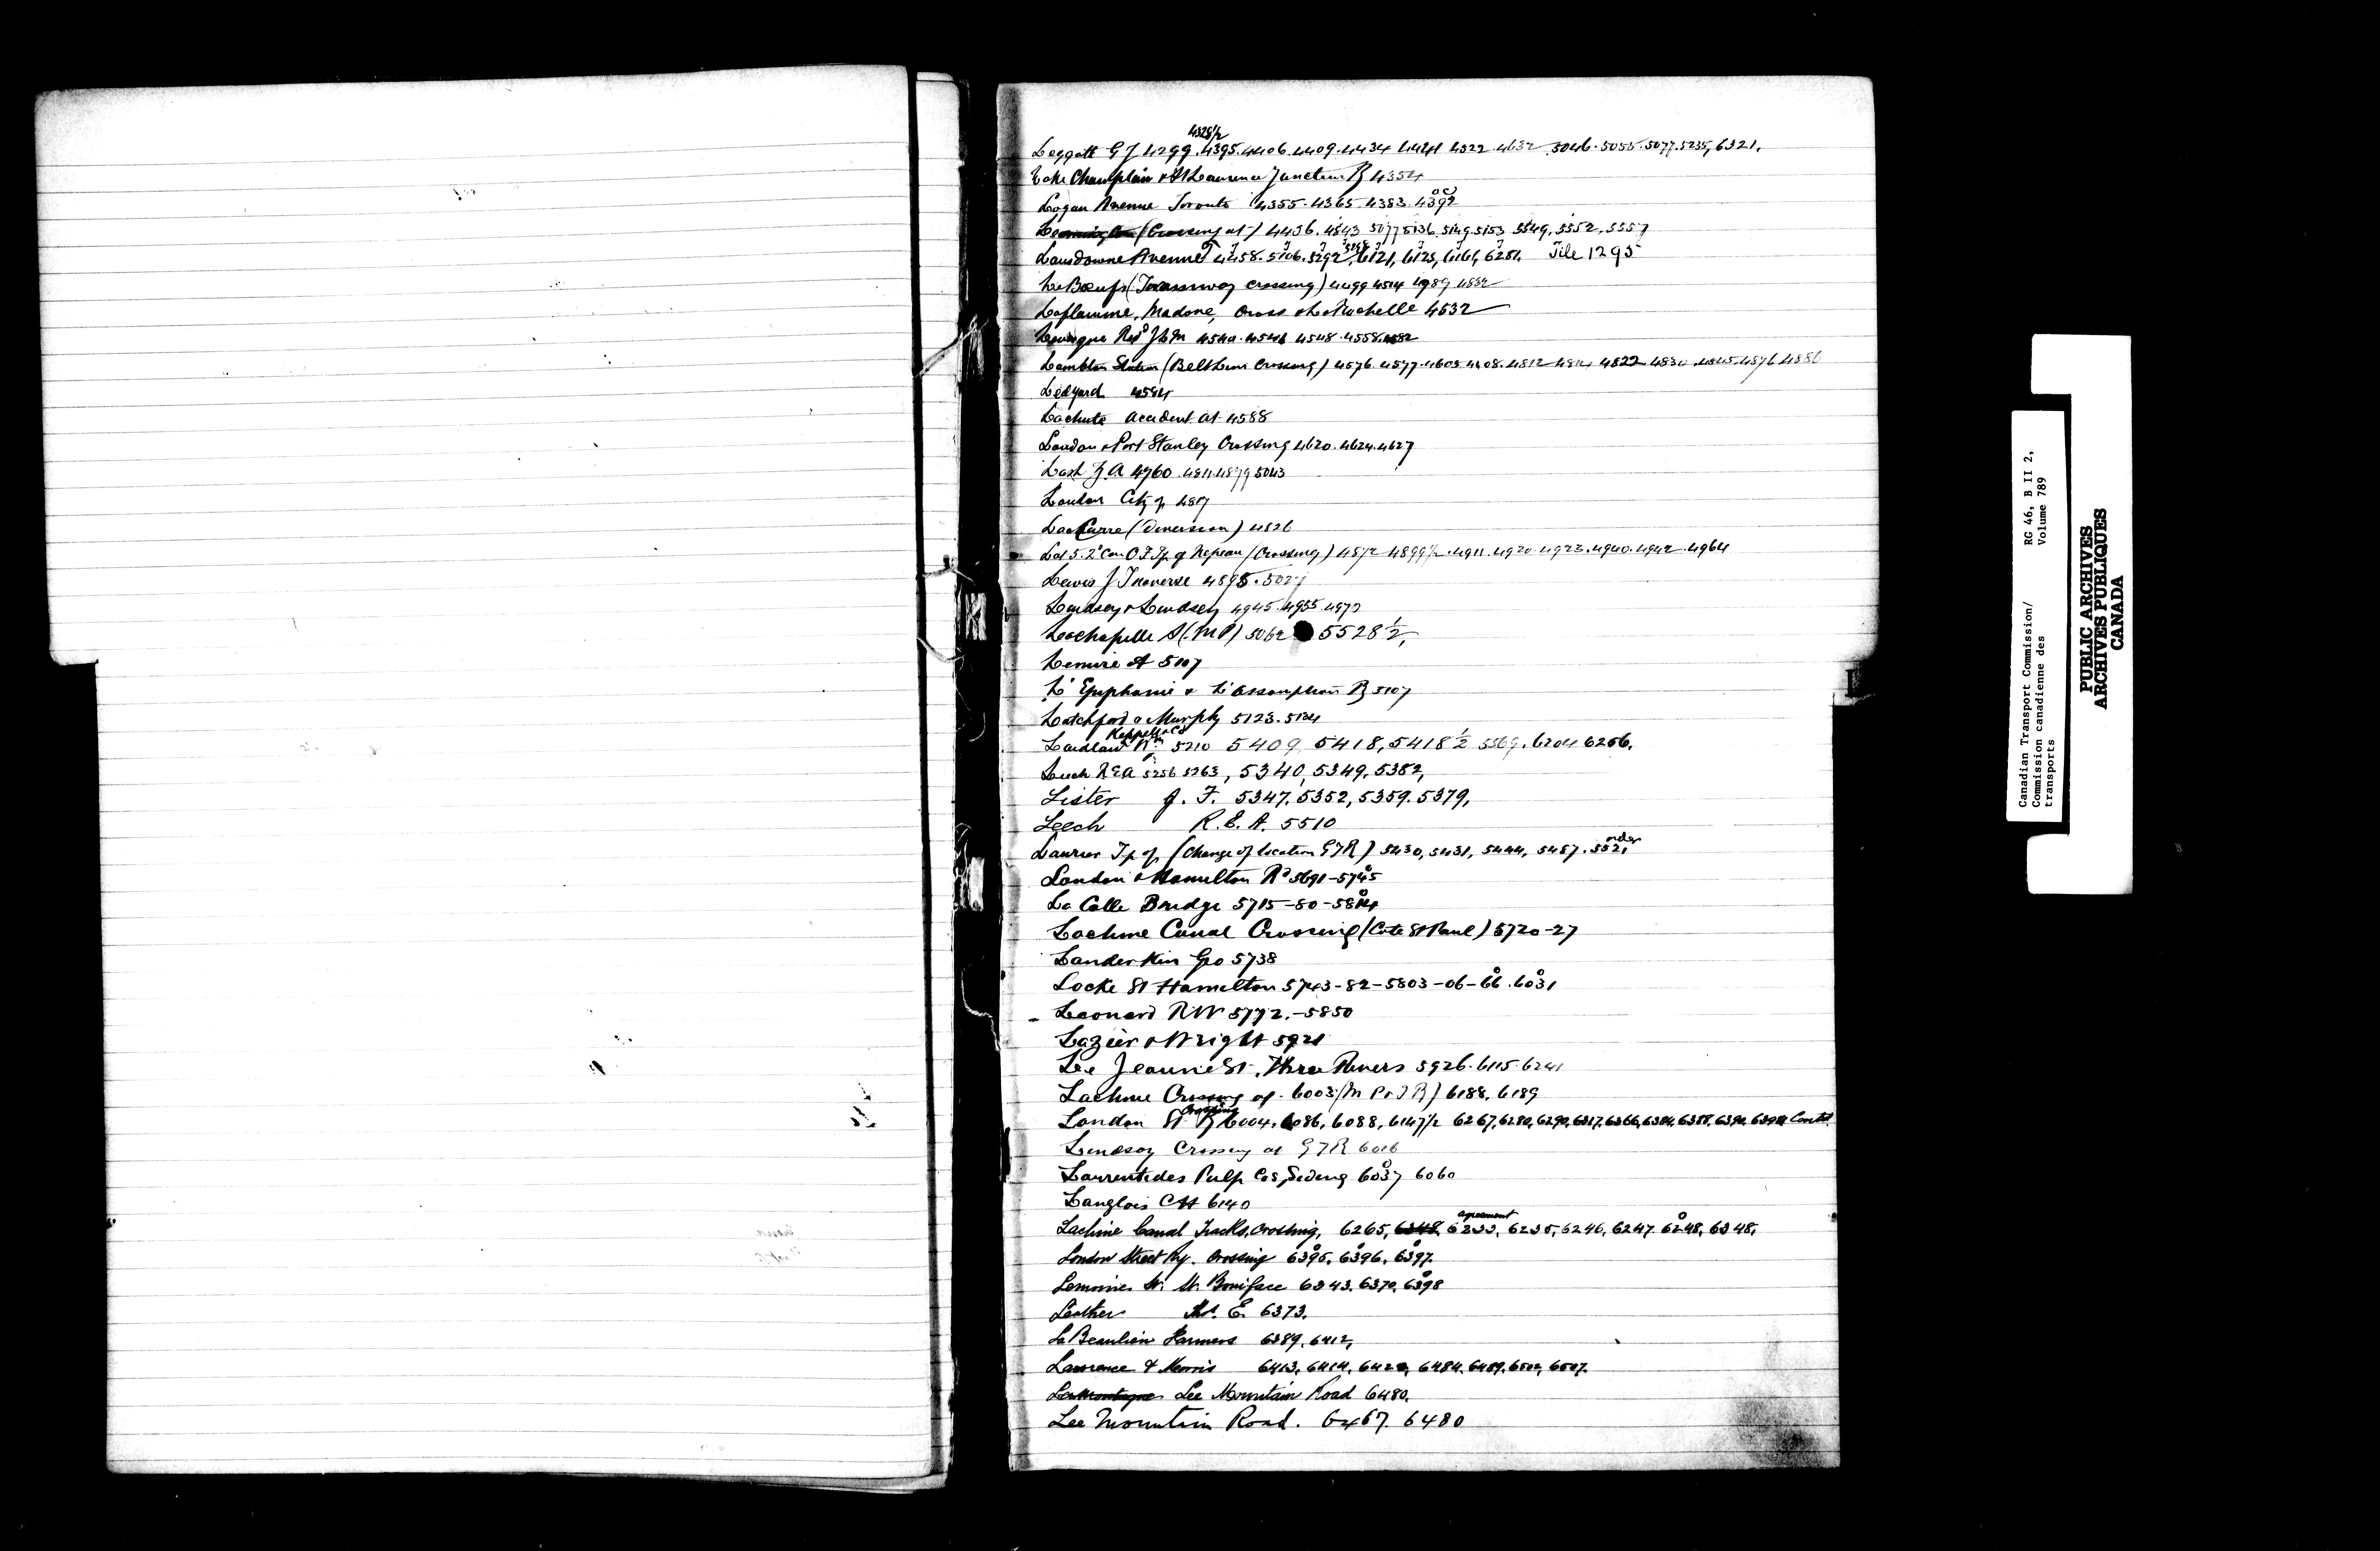 4328½
Leggatt G J 4299. 4395. 4406. 4409. 4434 4441 4522 4632 5046. 5055. 5077. 5235, 6321.
Lake Champlain & St Lawrence Junction Ry 4354
Logan Avenue Toronto 4355. 4365. 4383. 4392
(Crossing at) 4436. 4543 5077 5136. 5149 5153 5549, 5552, 5557
Lansdowne Avenue 4458. 5106. 5292, 6121, 6123, 6161, 6281. File 1295
LeBoeufs (Tramway crossing) 4499 4514 4989 4832
Laflamme, Madore, Cross & LaRochelle 4532
Levesque Revd J L M 4540. 4541 4548. 4558. 4582
Lambton Station (Belt Line Crossing) 4576. 4577. 4605 4608. 4812 4814 4822 4830 4845. 4876 4886
Ledyard 4584
Lachute accident at 4588
London & Port Stanley Crossing 4620. 4624. 4627
Lash Z. A 4760. 4811. 4879 5043
London City of 4817
(Diversion) 4826
Lot 5. 2d Con O F Tp of Nepean (Crossing) 4872 4899½. 4911. 4920. 4923. 4940. 4942. 4964
Lewis J Traverse 4895. 5027
Lindsey & Lindsey 4945. 4955. 4972
Lachapelle S (M P) 5062 5528½,
Lemire A 5107
L'Epiphanie & L'Assomption Ry 5107
Latchford & Murphy 5123. 5134
Kappelle & Co
Laidlaw Wm 5210 5409, 5418, 5418½ 5569, 6204 6256.
Leech R E A 5256 5263, 5340, 5349, 5382,
Lister J. F. 5347. 5352, 5359. 5379,
Leech R. E. A. 5510
order
Laurier Tp of (Change of location GTR) 5430, 5431, 5444, 5457. 5521
London & Hamilton Rd 5691–5745
La Colle Bridge 5715–80–5814
Lachine Canal Crossing (Cote St Paul) 5720–27
Landerkin Geo 5738
Locke St Hamilton 5743–82–5803–06–66. 6031
Leonard R W 5772.–5850
Lazier & Wright 5921
Lee Jeanne St. Three Rivers 5926. 6115. 6241
Lachine Crossing of. 6003 (M P & I Ry) 6188, 6189
Crossing
London St Ry 6004, 6086, 6088, 6147½ 6267, 6280, 6290, 6317, 6366, 6384, 6388, 6390, 6394 Contd
Lindsay Crossing at GTR 6016
Laurentides Pulp Co's Siding 6037 6060
Langlois C H 6140
agreement
Lachine Canal Tracks, Crossing, 6265, 6348, 6233, 6235, 6246, 6247. 6248, 6348,
London Street Ry. Crossing 6395, 6396, 6397.
Lemoine St. St. Boniface 6343. 6370. 6398
Leather E. 6373.
La Beaulieu Farmers 6389. 6412,
Lawrence & Morris 6413, 6414, 6420, 6484. 6489. 6502, 6507.
Lamontagne Lee Mountain Road 6480.
Lee Mountain Road. 6467. 6480
L
Canadian Transport Commission/
Commission canadienne des
transports
RG 46, B II 2,
Volume 789
PUBLIC ARCHIVES
ARCHIVES PUBLIQUES
CANADA